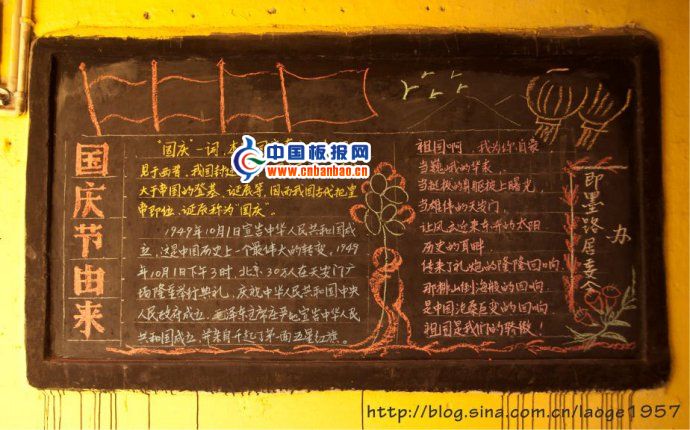 国庆节由来
"国庆"一词
中国板报网
www.cnbanbao.cn
见于西晋,我国封
大于帝国的登基、诞辰等,因而我国古代把皇
帝即位、诞辰称为"国庆"。
1949年10月1日宣告中华人民共和国成
立,这是中国历史上一个最伟大的转变。1949
年10月1日下午3时,北京30万人在天安门广
场隆重举行典礼,庆祝中华人民共和国中央
人民政府成立。毛泽东主席庄严地宣告中华人民
共和国成立,并亲自升起了第一面五星红旗。
祖国啊,我为你自豪
当巍峨的华表,
当挺拔的身躯披上曙光,
当雄伟的天安门,
让风
来东升的太阳
历史的耳畔,
传来了礼炮的隆隆回响,
那排山倒海般的回响,
是中国沧桑巨变的回响
祖国是我们的骄傲!
即墨路居委会
办
http://blog.sina.com.cn/laoge1957